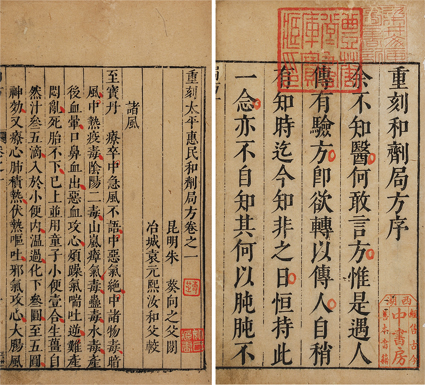 重刻和劑局方序
余不知醫何敢言方惟是遇人
傳有驗方卽欲轉以傳人自稍
有知時迄今知非之日恒持此
一念亦不自知其何以肫肫不
中書房
重刻太平惠民和劑局方卷之一
昆明朱 葵向之父閱
冶城袁元熙汝和父較
諸風
至寶丹 療卒中急風不語中惡氣絕中諸物毒暗
風中熱疫毒陰陽二毒山嵐瘴氣毒蠱毒水毒產
後血暈口鼻血出惡血攻心煩躁氣喘吐逆難產
悶亂死胎不下已上並用童子小便壹合生薑自
然汁叁五滴入於小便內溫過化下叁圓至五圓
神効又療心肺積熱伏熱嘔吐邪氣攻心大腸風